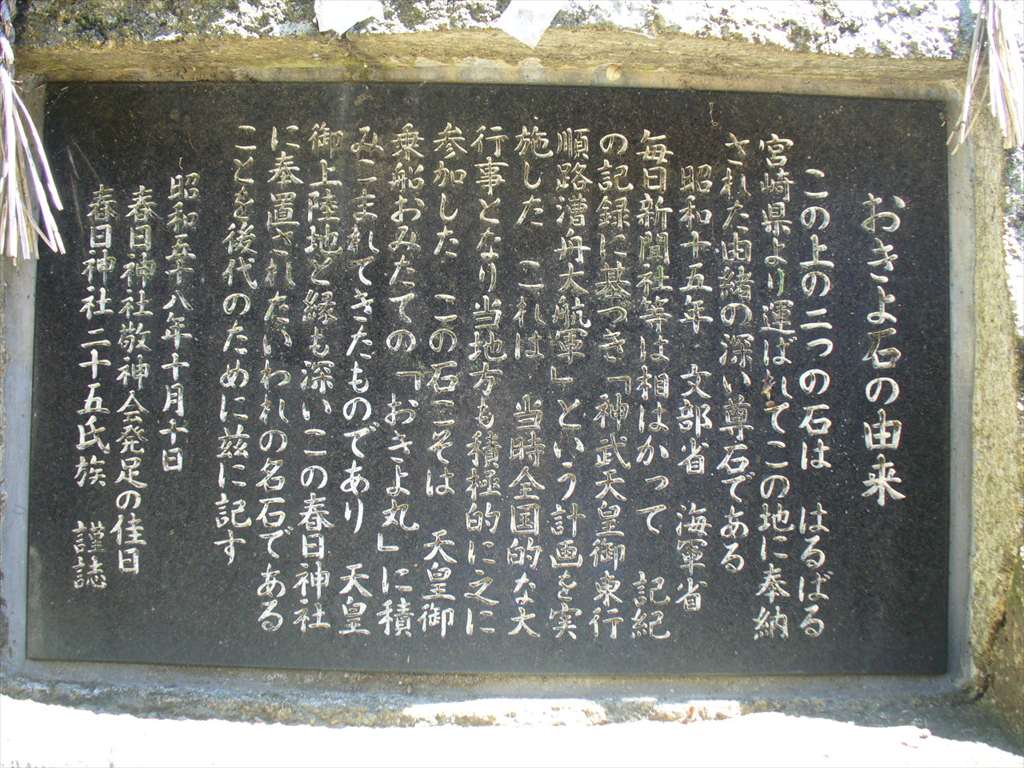 おきよ石の由来
この上の二つの石は はるばる
宮崎県より運ばれてこの地に奉納
された由緒の深い尊石である
昭和十五年 文部省 海軍省
毎日新聞社等は相はかって 記紀
の記録に基づき「神武天皇御東行
順路漕舟大航軍」という計画を実
施した これは 当時全国的な大
行事となり当地方も積極的に之に
参加した この石こそは 天皇御
乗船おみたての「おきよ丸」に積
みこまれてきたものであり 天皇
御上陸地と縁も深いこの春日神社
に奉置されたいわれの名石である
ことを後代のために茲に記す
昭和五十八年十月十日
春日神社敬神会発足の佳日
春日神社二十五氏族 謹誌